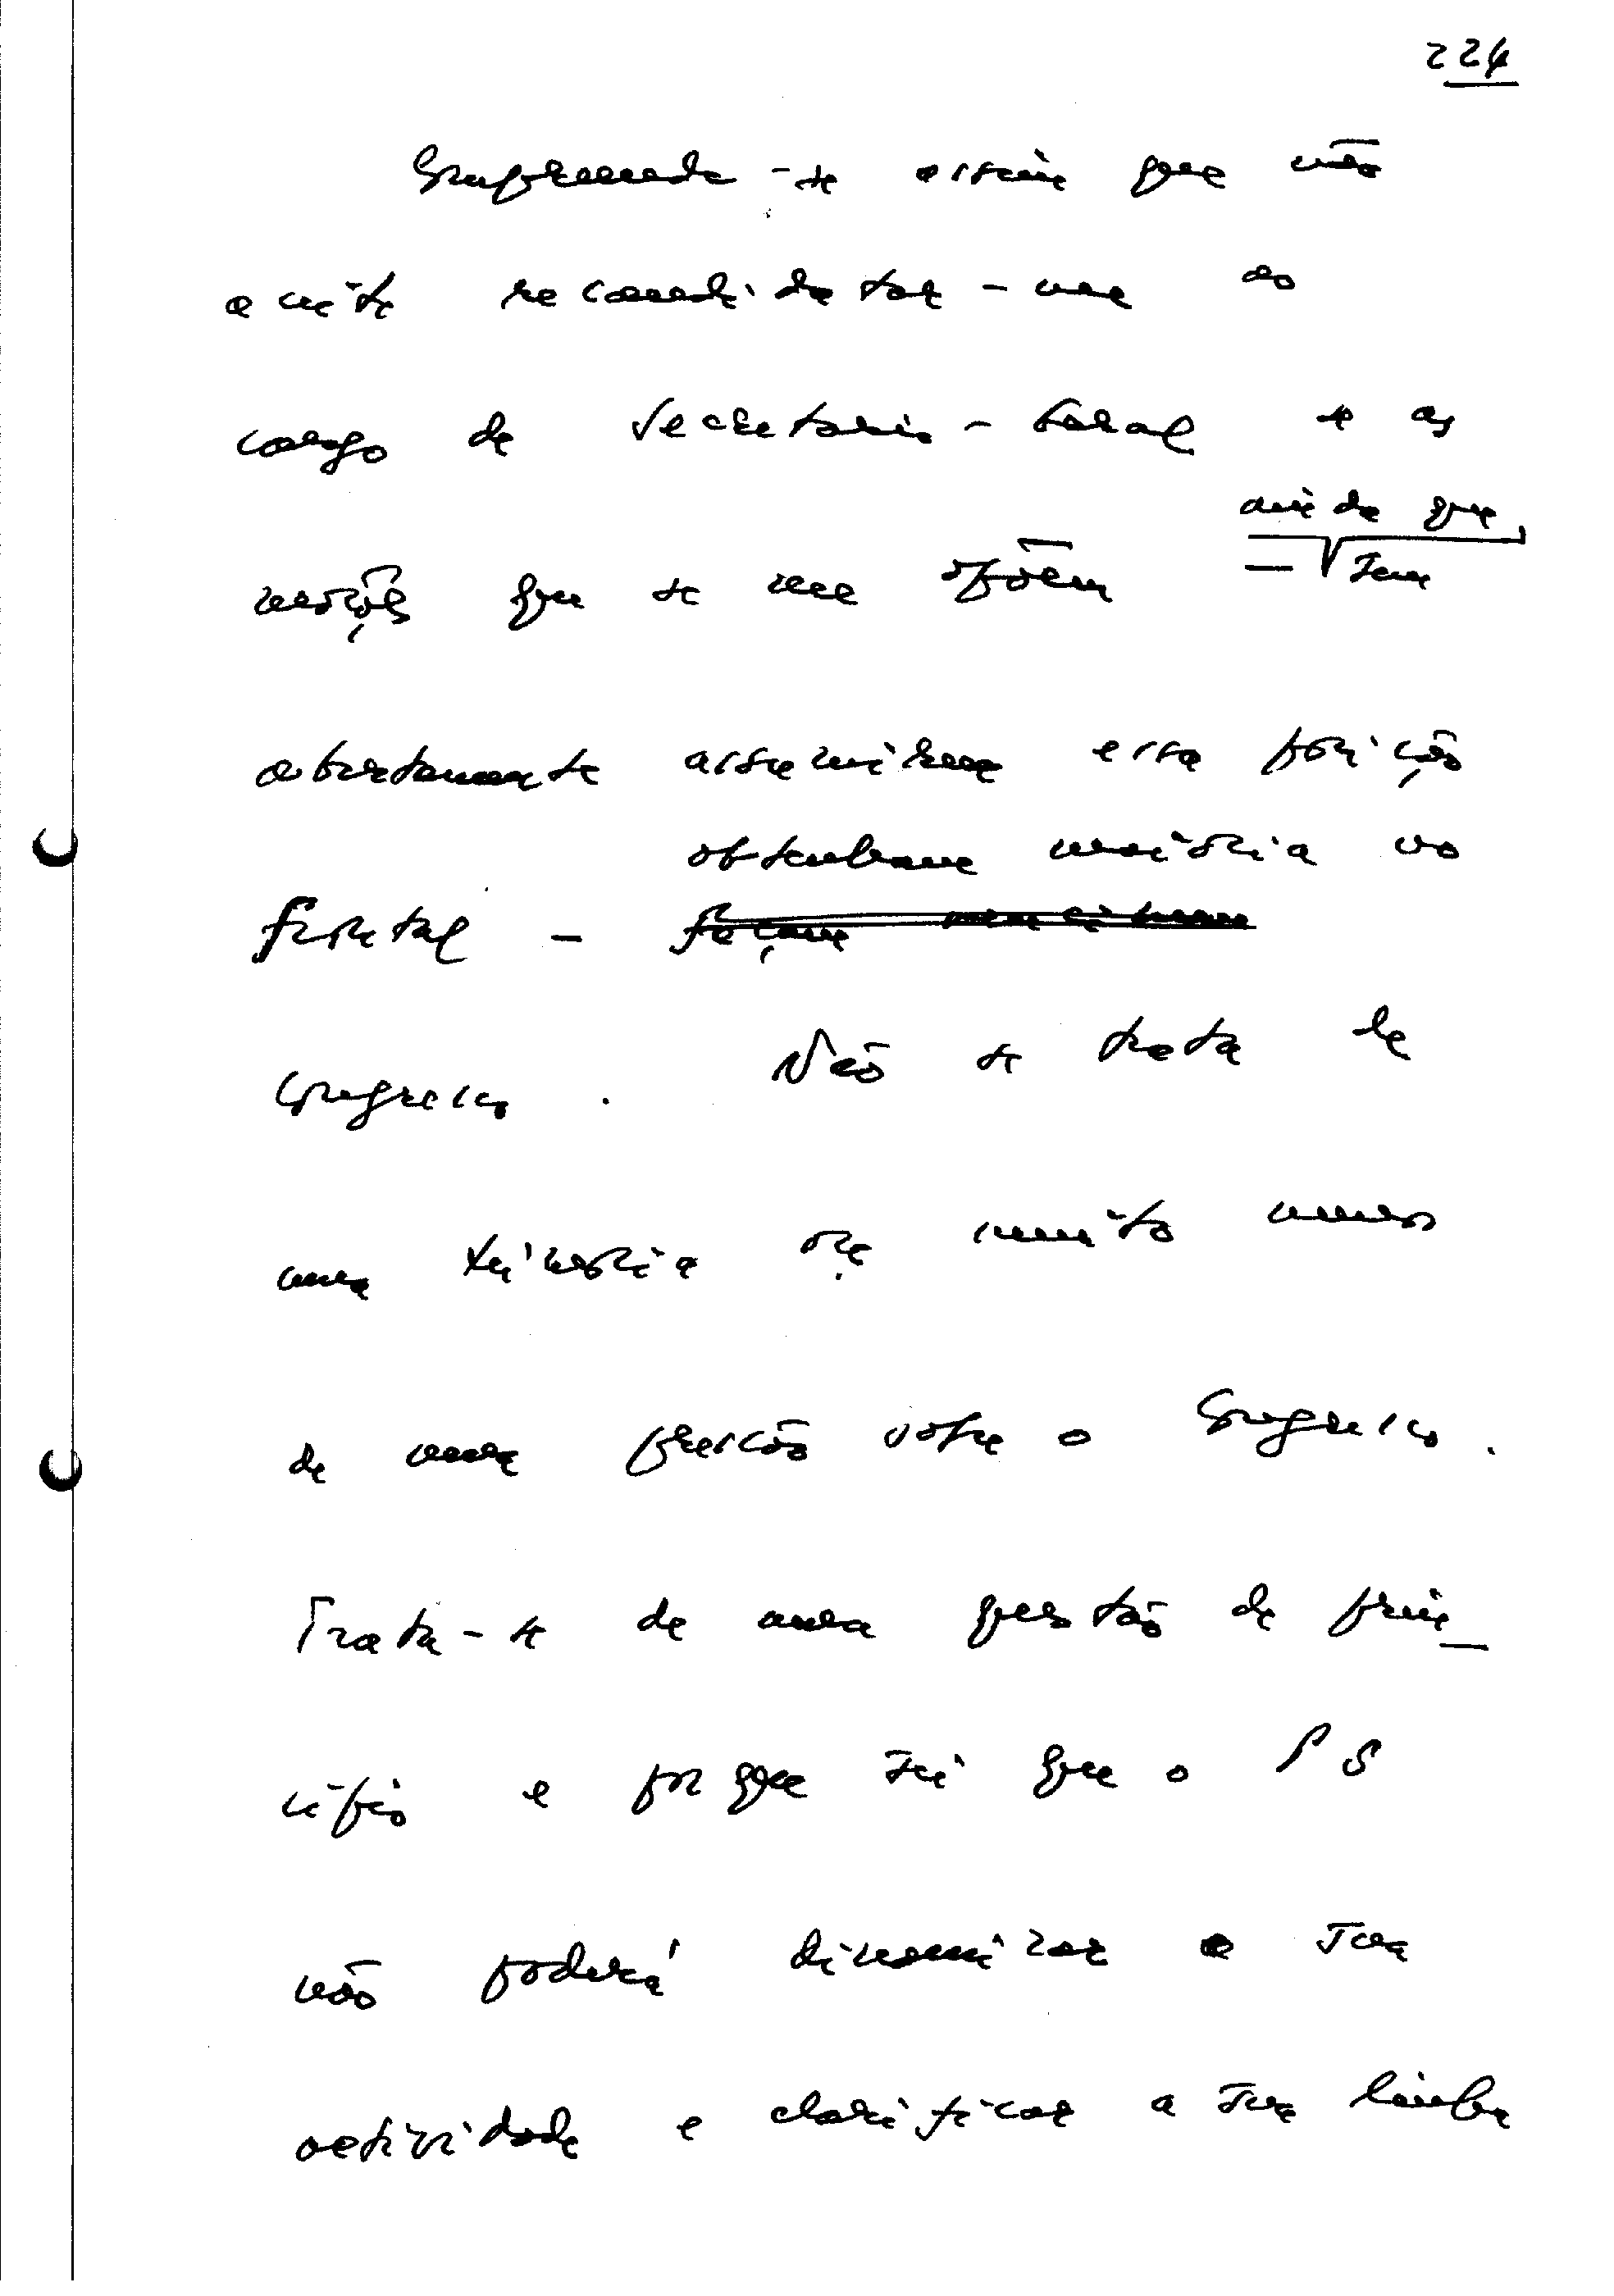 224
Compreende-se assim que não
aceite recandidatar-me ao
cargo de Secretário-Geral se as
ainda que
moções que se me opõem - sem
abertamente assumirem essa posição
obtenham maioria no
frontal - façam
Congresso. Não se trata de
uma teimosia ou, muito menos
de uma pressão sobre o Congresso.
Trata-se de uma questão de prin_
cípio e porque sei que o PS
não poderá dinamizar a sua
actividade e clarificar a sua linha